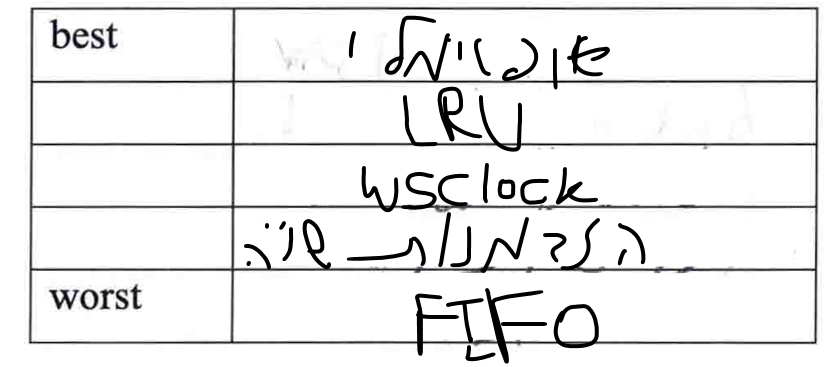 best אופטימלי
LRU
WSClock
הזדמנות שניה
worst FIFO